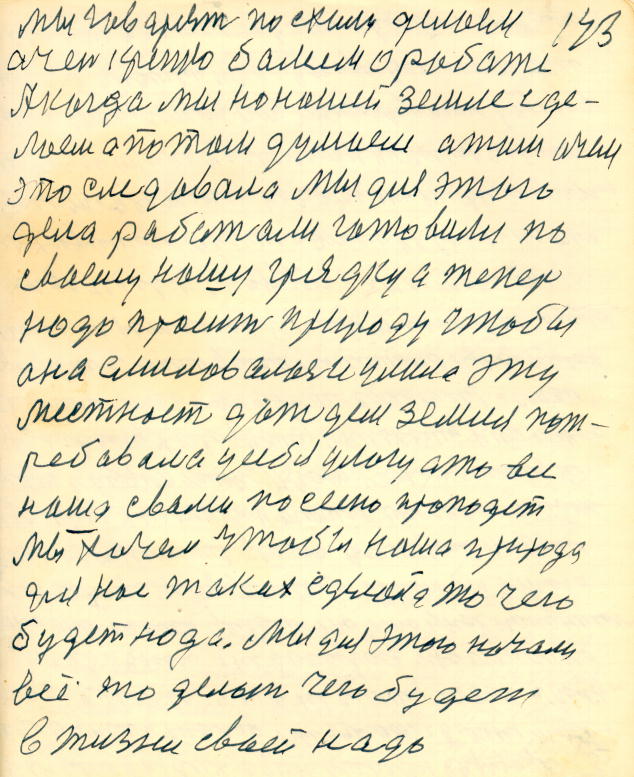 мы говарям по схили делаем 143
очен крепко балеем о работе
А когда мы но нашей земле сде-
лаем а потом думаем а тим очем
это следовала Мы для этого
дела работали готовили по
своему нашу грядку а тепер
надо просит природу чтобы
она смиловалася и улила эту
местност дождем земля пот-
ребовала у себя улогу а то все
наша свами посеено пропадет
Мы хочем чтобы наша природа
для нас таких сделала то чего
будет нода. Мы для этого начали
всё то делат чего будет
в жизни своей надо